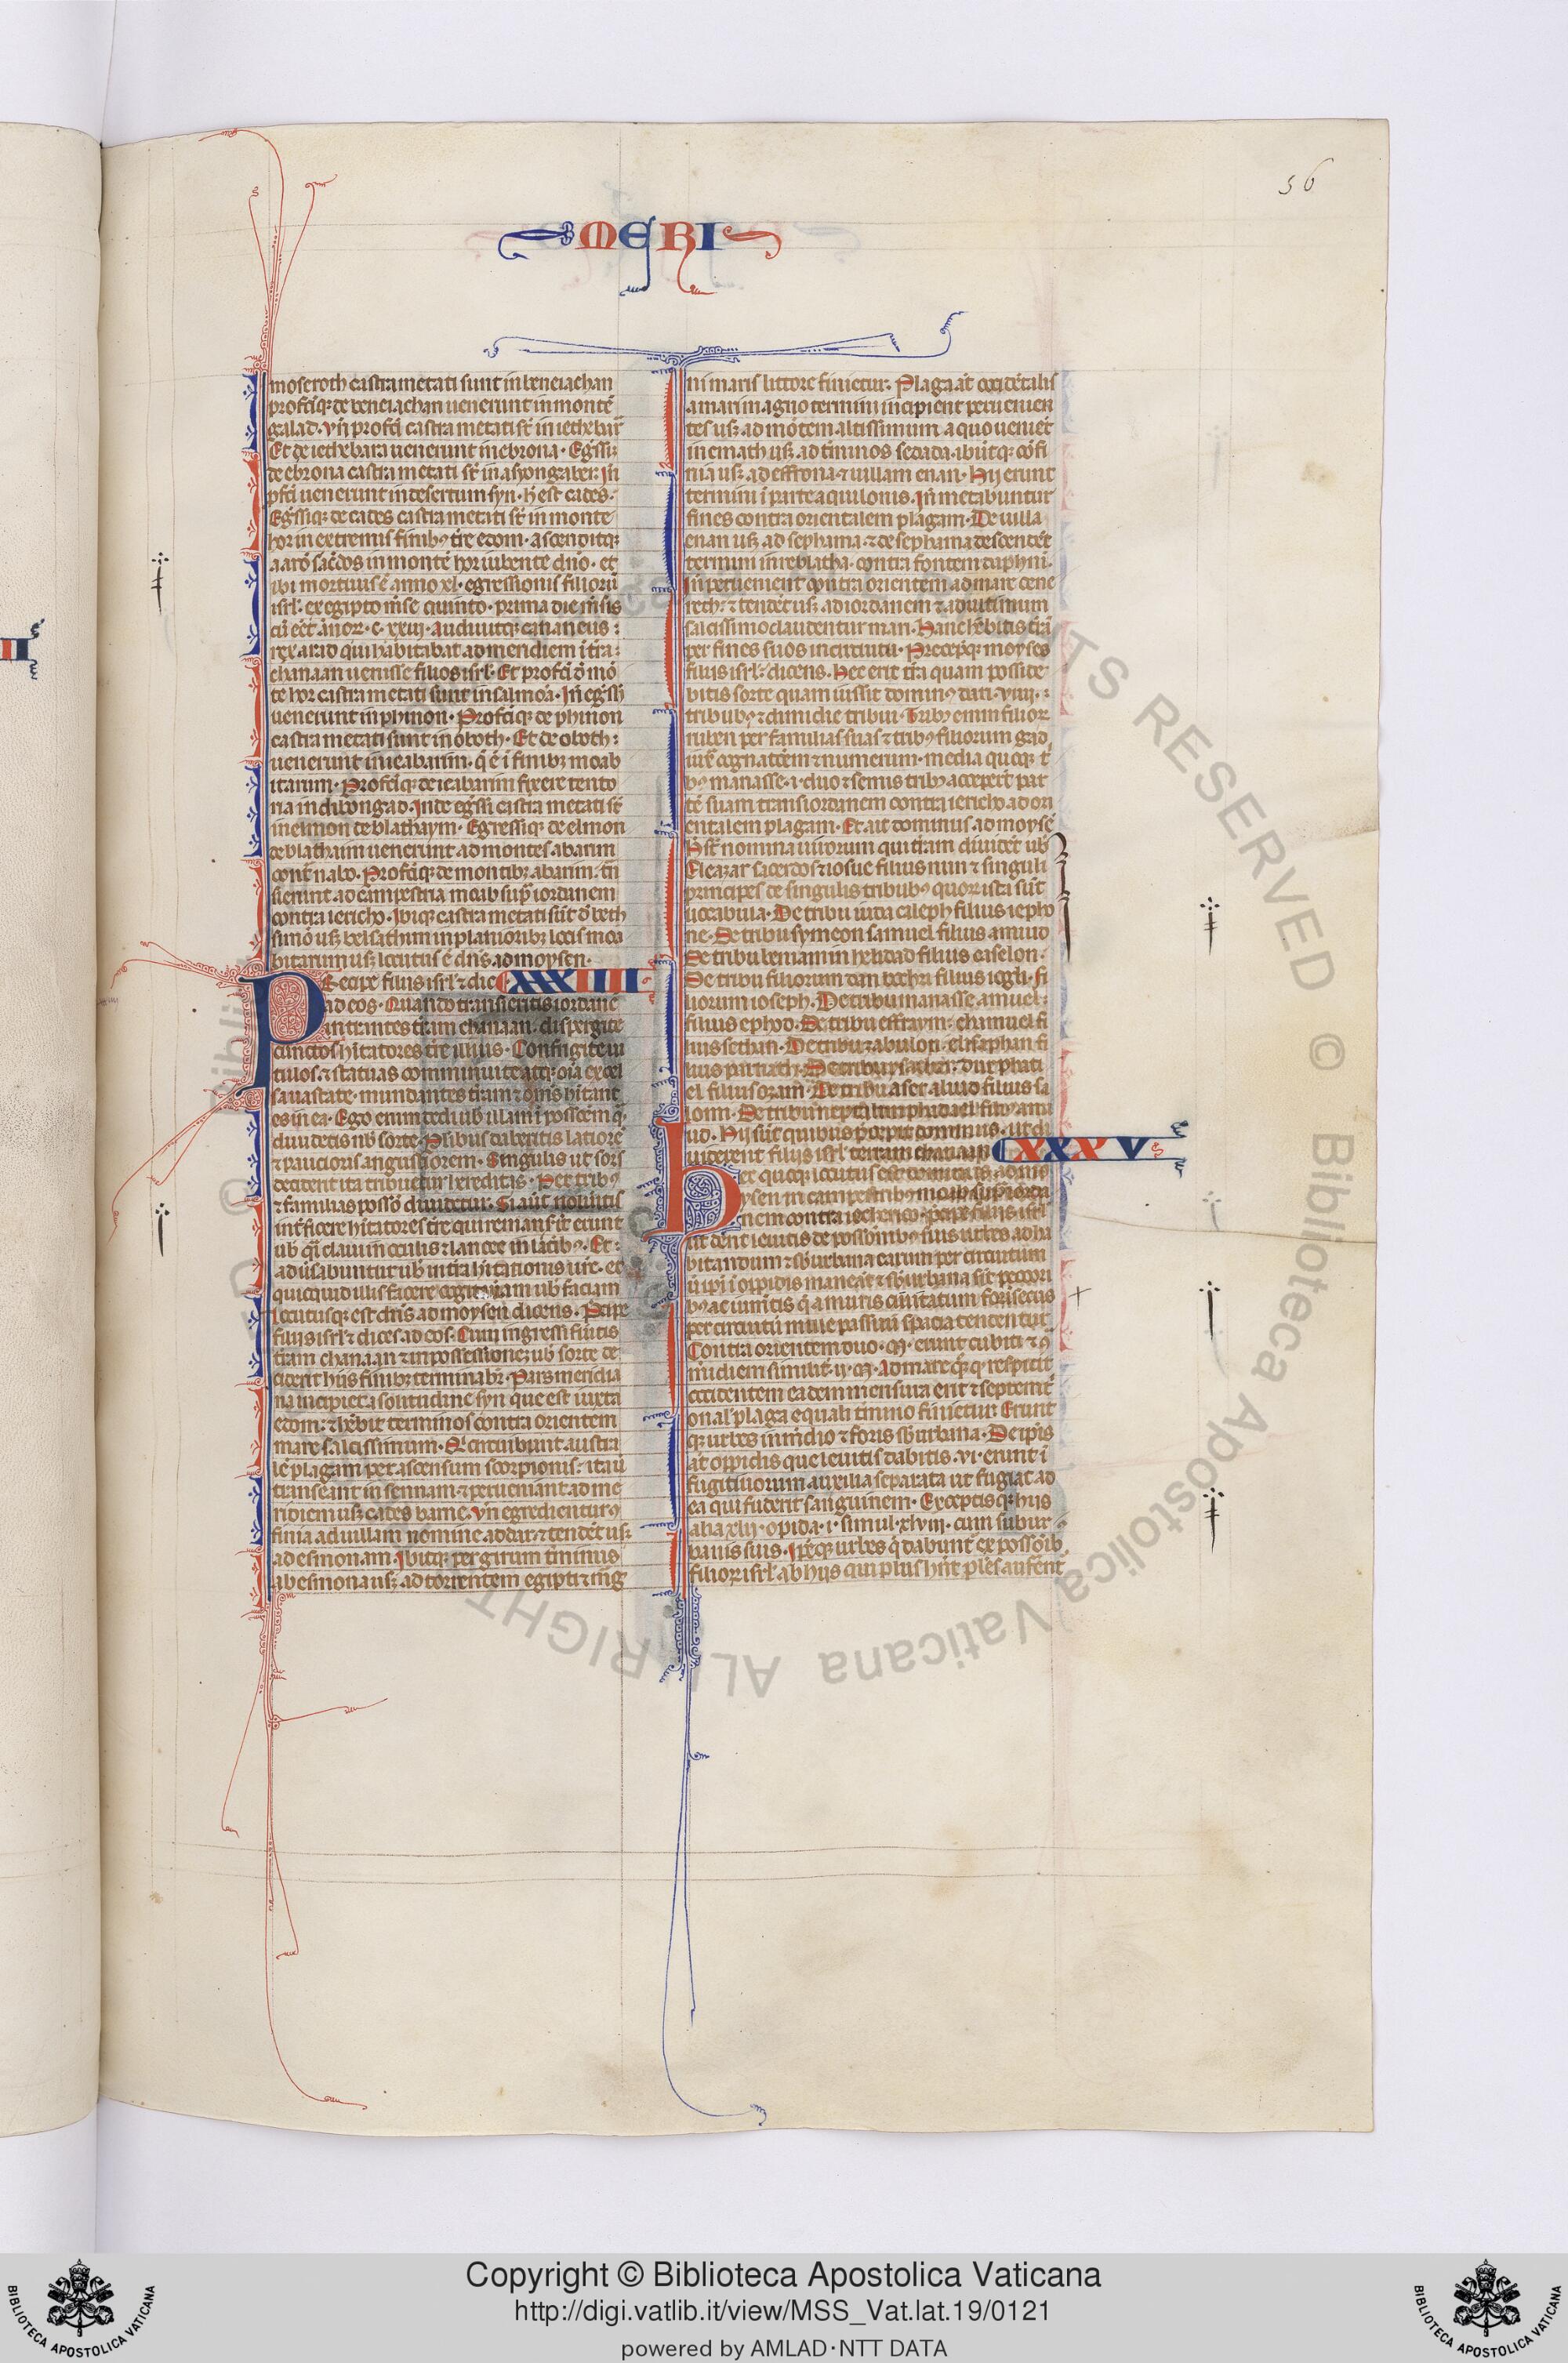 56
MERI
moseroth castrametati sunt in beneiachan
profectiq; de beneiachan uenerunt in monte
galad. vn profecti castra metati st in iethebat
Et de iethebara uenerunt in ebrona. Egressiq;
de ebrona castra metati st in asyongaber. In
pfecti uenerunt in desertum syn. h est cades.
Egressiq; de cades castra metati st in monte
hor in extremis finib9 tre edom. ascenditq;
aaron sacdos in monte hor iubente dno. et
ibi mortuus e anno xl. egressionis filioru
isrl. ex egipto mse quinto. prima die msis
cu eet annor. c. xxiij. audiuitq; cananeus
rex arad qui habitabat ad meridiem i tra
chanaan uenisse filios isrl. Et profecti d mo
te hor castra metati sunt in salmona. In egssi
uenerunt in phinon. Profectiq; de phinon
castra metati sunt in oboth. Et de oboth
uenerunt in ieabarim. q e i finib; moab
itarum. Profectiq; de ieabarim fixere tento
ria in dibongad. Inde egssi castra metati st
in elmon deblathaym. Egressiq; de elmon
deblathaim uenerunt ad montes abarim
contra nabo. Profectiq; de montib; abarim. tn
sierunt ad campestria moab sup iordanem
contra iericho. Ibiq; castra metati sut d beth
simo us; belsathim in planiorib; locis moa
bitarum us; locutus e dns ad moysen.
Precipe filiis isrl 7 dic CXXXIIII
ad eos. Quando transieritis iordane
intrantes tram chanaan. dispergite
cunctos hitatores tre illius. Confrigite ti
tulos. 7 statuas comminuite atq; oia excel
sa uastate. mundantes tram 7 oms hitant
es in ea. Ego enim dedi uob illam i possesm q
diuidetis nb sorte. Plibus dabitis latiore
7 paucioris angustiorem. Singulis ut sors
ceciderit ita tribuetur hereditas. Per trib9
7 familias possessio diuidetur. Si aut nolueritis
interficere hitatores tre qui remanserit erunt
ub qi claui in oculis 7 lancee in laterib9. Et
aduersabuntur ub in tra hitationis ure. et
quicquid illis facere cogitaram ub faciam
Locutusq; est dns ad moysen dicens. Pcipe
filiis isrl 7 dices ad eos. Cum ingressi fueritis
tram chanaan 7 in possessionez ub sorte ce
ciderit hiis finib; terminabr. Pars meridia
na incipiet a solitudine syn que est iuxta
edom. 7 hebit terminos contra orientem
mare salcissimum. Qi circuibunt austra
le plagam per ascensum scorpionis. ita ut
transeant in sennam 7 perueniant ad me
ridiem us; cades barne. vn egredientur 9
finia ad uillam nomine addar. 7 tendet us;
ad esmonam. Ibitq; per girum terminus
ab esmona us; ad torrentem egipti 7 mg
ni maris littore finietur. Plaga at occidetalis
a mari magno termini incipient peruenien
tes us; ad motem altissimum a quo ueniet
in emath us; ad tminos sedada. ibuntq; cofi
nia us; ad effrona 7 uillam enan. Hij erunt
termini i parte aquilonis. In metabuntur
fines contra orientalem plagam. De uilla
enan us; ad sephama. 7 de sephama descendet
termini in reblatha. contra fontem daphni.
In peruenient contra orientem ad mare cene
reth. 7 tendet us; ad iordanem 7 ad ultimum
salcissimo claudentur mari. Hanc hebitis tra
per fines suos in circuitu. Precepitq; moyses
filiis isrl. dicens. Hec erit tra quam posside
bitis sorte quam iussit domin9 dari. viiij.
tribub9 7 dimidie tribui. Trib9 enim filior
ruben per familias suas 7 trib9 filiorum gad
iux cognatoem 7 numerum. media quoq; t
b9 manasse. i. duo 7 semis trib9 acceperit par
te suam trans iordanem contra iericho ad ori
entalem plagam. Et ait dominus ad moyse
Hec st nomina uirorum qui tram diuidet ub
Eleazar sacerdos 7 iosue filius nun 7 singuli
principes de singulis tribub9 quor ista sut
uocabula. De tribu iuda caleph filius iepho
ne. De tribu symeon samuel filius amiud
De tribu beniamin helidad filius caselon.
De tribu filiorum dan bochri filius iogli. fi
liorum ioseph. De tribu manasse amuel
filius ephod. De tribu effraym. chamuel fi
lius sethan. De tribu zabulon. elisaphan fi
lius parnath. De tribu ysachar. dux phati
el filius ozam. De tribu aser. aliud filius sa
lomi. De tribu neptalim phedael filius ami
ud. Hij sut quibus pcepit dominus. ut di
uiderent filiis isrl terram chanaan CXXXV
Hec quoq; locutus est dominus ad mo
ysen in campestrib9 moab supra iorda
nem contra iecherico. pcipe filiis isrl
ut dent leuitis de possessionib9 suis urbes ad ha
bitandum 7 suburbana earum per circuitum
ut ipi i oppidis maneat 7 suburbana sit pecori
b9 ac iumentis q a muris ciuitatum forinsecus
per circuitu mille passuu spacia tendentur.
Contra orientem duo. M. erunt cubiti 7 9
meridiem similit. ij. M. Ad mare q; q respicit
occidentem eadem mensura erit 7 septemt
onal plaga equali tmino finietur. Erunt
q; urbes in medio 7 foris suburbana. De ipis
at oppidis que leuitis dabitis. vi. erunt i
fugitiuorum auxilia separata ut fugiat ad
ea qui fuderit sanguinem. Exceptis q; hiis
alia xlij. opida. i. simul. xlviij. cum subur
banis suis. Ipeq; urbes q dabunt ex possessib.
filior isrl ab hijs qui plus hnt ples auferent
Copyright © Biblioteca Apostolica Vaticana
http://digi.vatlib.it/view/MSS_Vat.lat.19/0121
powered by AMLAD·NTT DATA
BIBLIOTECA APOSTOLICA VATICANA
BIBLIOTECA APOSTOLICA VATICANA